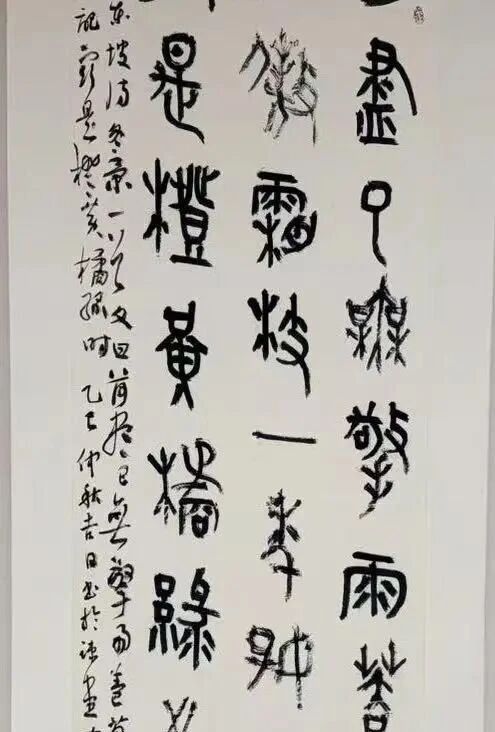 盡已無擎雨蓋
傲霜枝一年好
是橙黃橘綠
東坡詩冬景一文曰荷盡已無擎雨蓋
記正是橙黃橘綠時乙巳仲秋吉日書於